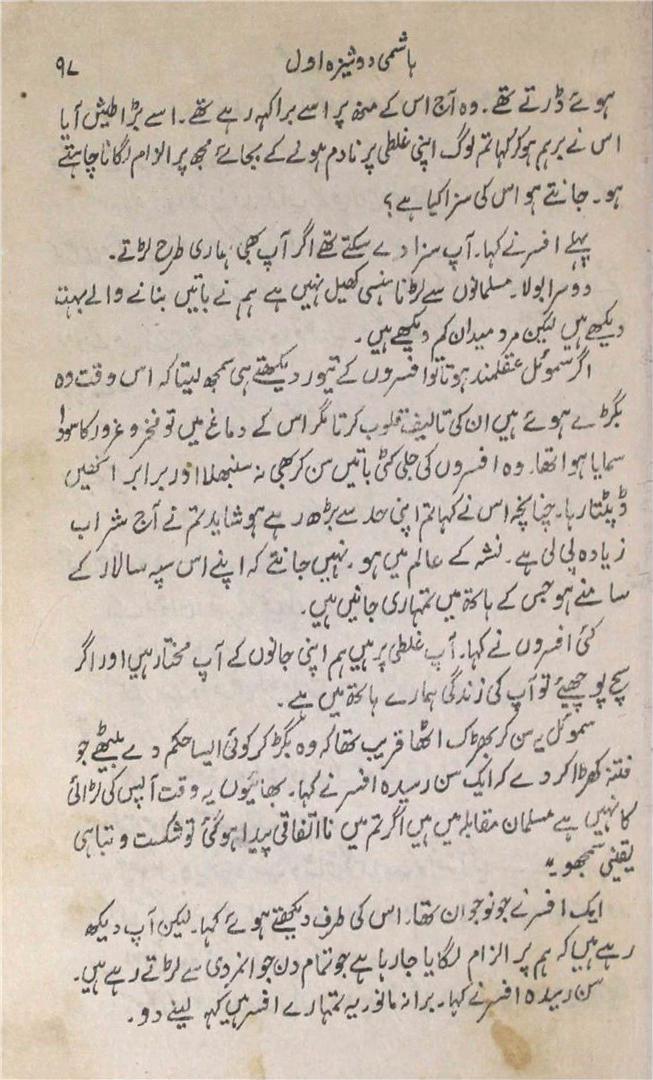 ہاشمی دوشیزہ اول ۹۷
ہوئے ڈرتے تھے۔ وہ آج اس کے منھ پر اسے برا کہہ رہے تھے۔ اسے بڑا طیش آیا
اس نے برہم ہو کر کہا تم لوگ اپنی غلطی پر نادم ہونے کے بجائے مجھ پر الزام لگانا چاہتے
ہو۔ جانتے ہو اس کی سزا کیا ہے؟
پہلے افسر نے کہا۔ آپ سزا دے سکتے تھے اگر آپ بھی ہماری طرح لڑتے۔
دوسرا بولا۔ مسلمانوں سے لڑنا ہنسی کھیل نہیں ہے ہم نے باتیں بنانے والے بہت
دیکھے ہیں لیکن مرد میدان کم دیکھے ہیں۔
اگر سموئل عقلمند ہوتا تو افسروں کے تیور دیکھتے ہی سمجھ لیتا کہ اس وقت وہ
بگڑے ہوئے ہیں ان کی تالیف قلوب کرتا مگر اس کے دماغ میں تو فخر و غرور کا سودا
سمایا ہوا تھا۔ وہ افسروں کی جلی کٹی باتیں سن کر بھی نہ سنبھلا اور برابر انھیں
ڈپٹتا رہا۔ چنانچہ اس نے کہا تم اپنی حد سے بڑھ رہے ہو شاید تم نے آج شراب
زیادہ پی لی ہے۔ نشہ کے عالم میں ہو۔ نہیں جانتے کہ اپنے اس سپہ سالار کے
سامنے ہو جس کے ہاتھ میں تمہاری جانیں ہیں۔
کئی افسروں نے کہا۔ آپ غلطی پر ہیں ہم اپنی جانوں کے آپ مختار ہیں اور اگر
سچ پوچھیئے تو آپ کی زندگی ہمارے ہاتھ میں ہے۔
سموئل یہ سن کر بھڑک اٹھا قریب تھا کہ وہ بگڑ کر کوئی ایسا حکم دے بیٹھے جو
فتنہ کھڑا کر دے کہ ایک سن رسیدہ افسر نے کہا۔ بھائیوں یہ وقت آپس کی لڑائی
کا نہیں ہے مسلمان مقابلہ میں ہیں اگر تم میں نااتفاقی پیدا ہو گئی تو شکست و تباہی
یقینی سمجھو
ایک افسر نے جو نوجوان تھا۔ اس کی طرف دیکھتے ہوئے کہا۔ لیکن آپ دیکھ
رہے ہیں کہ ہم پر الزام لگایا جا رہا ہے جو تمام دن جوانمردی سے لڑتے رہے ہیں۔
سن رسیدہ افسر نے کہا۔ برا نہ مانو یہ تمہارے افسر ہیں کہہ لینے دو۔